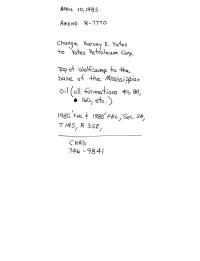 APRIL 10, 1985
AMEND R-7770
Change Harvey E. Yates
to Yates Petroleum Corp.
Top of Wolfcamp to the
base of the Mississippian
Oil (all formations 40, 80,
160, etc.)
1980' FNL & 1980' FEL, Sec. 24,
T14S, R35E,
CHAD
746-9841